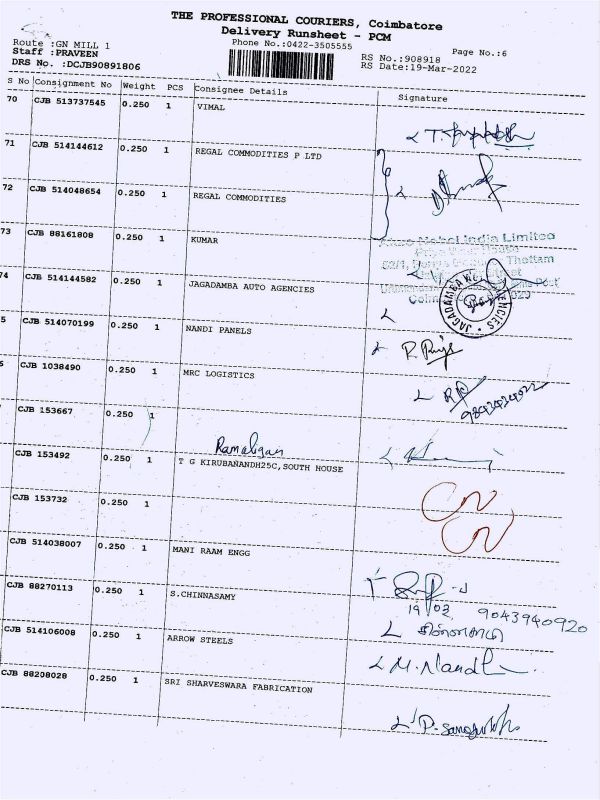 THE PROFESSIONAL COURIERS, Coimbatore
Delivery Runsheet - PCM
Phone No.:0422-3505555
Page No.:6
Route :GN MILL 1
Staff :PRAVEEN
DRS No. :DCJB90891806
RS No.:908918
RS Date:19-Mar-2022
S No Consignment No Weight PCS Consignee Details Signature
70 CJB 513737545 0.250 1 VIMAL
71 CJB 514144612 0.250 1 REGAL COMMODITIES P LTD
72 CJB 514048654 0.250 1 REGAL COMMODITIES
73 CJB 88161808 0.250 1 KUMAR
Nobel India Limited
Thottam
Street
74 CJB 514144582 0.250 1 JAGADAMBA AUTO AGENCIES
JAGADAMBA
5 CJB 514070199 0.250 1 NANDI PANELS
6 CJB 1038490 0.250 1 MRC LOGISTICS
CJB 153667 0.250 1
CJB 153492 0.250 1 T G KIRUBANANDH25C,SOUTH HOUSE
CJB 153732 0.250 1
CJB 514038007 0.250 1 MANI RAAM ENGG
CJB 88270113 0.250 1 S.CHINNASAMY
19/03 9043940920
CJB 514106008 0.250 1 ARROW STEELS
M. Nandh
CJB 88208028 0.250 1 SRI SHARVESWARA FABRICATION